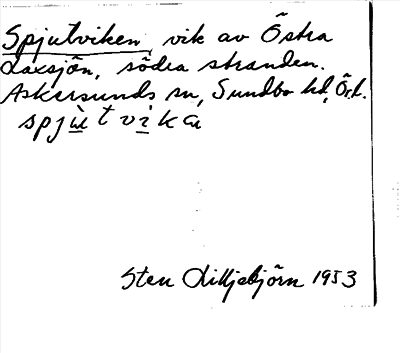 Spjutviken, vik av Östra
Laxsjön, södra stranden.
Askersunds sn, Sundbo hd, Ör.l.
spjùtvika
Sten Lilljebjörn 1953